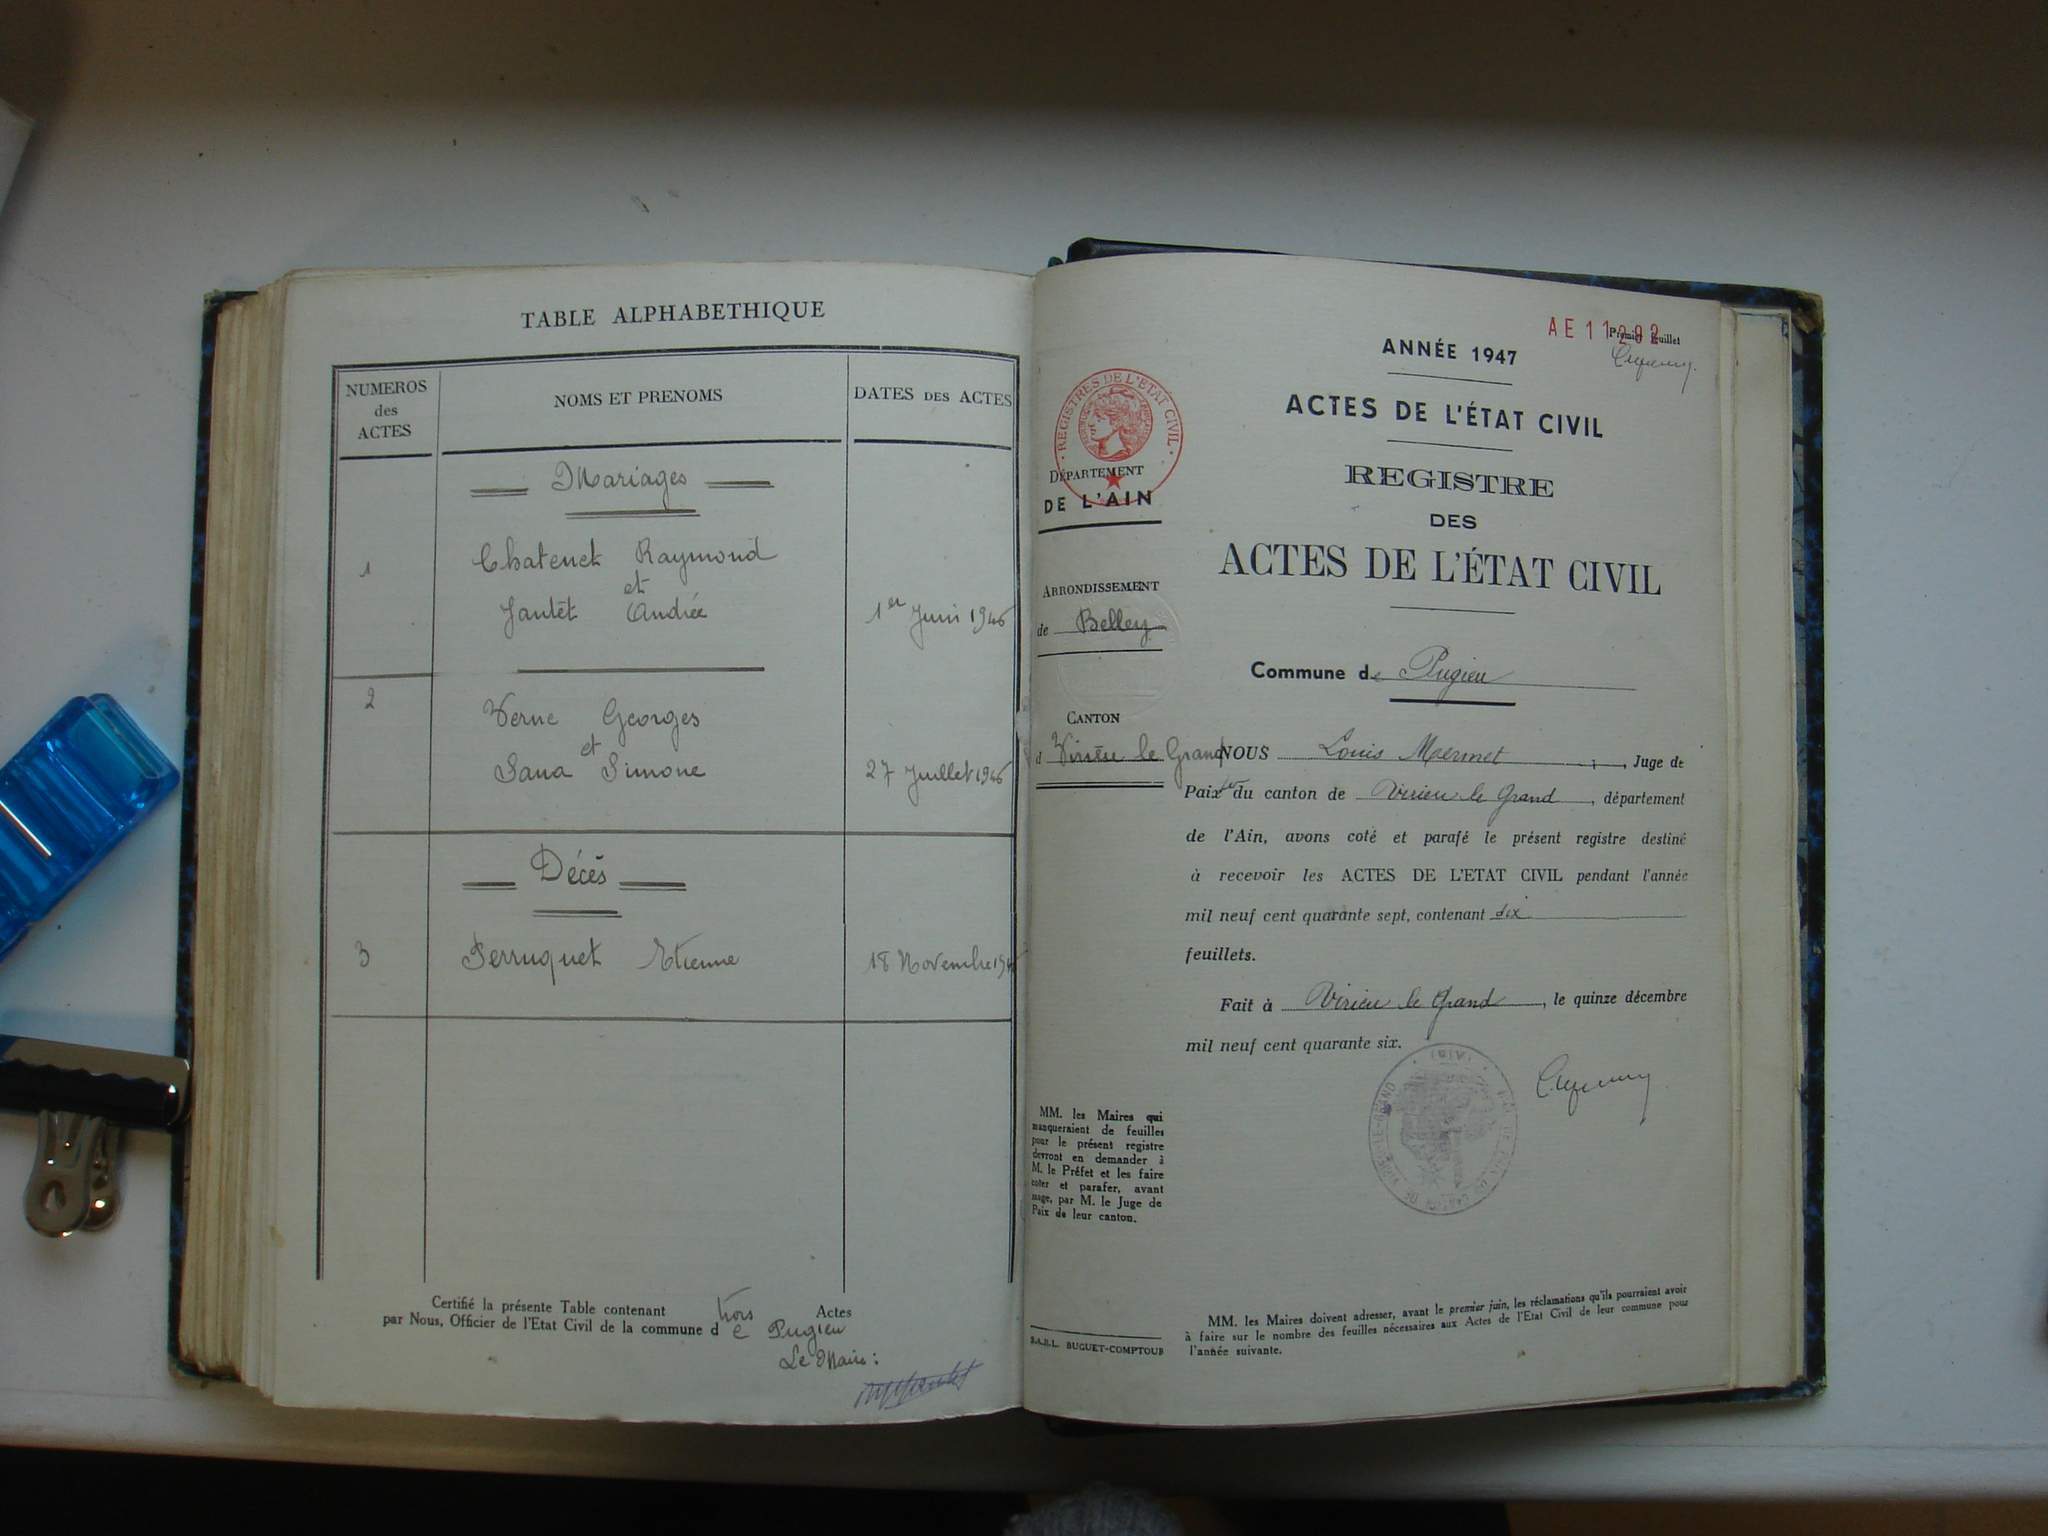 TABLE ALPHABETHIQUE
NUMEROS
des
ACTES
NOMS ET PRENOMS
DATES DES ACTES
Mariages
1
Chatenet Raymond
et
Jantet Andrée
1er Juin 1946
2
Verne Georges
et
Sana Simone
27 Juillet 1946
Décès
3
Perruquet Etienne
18 Novembre
Certifié la présente Table contenant trois Actes
par Nous, Officier de l'Etat Civil de la commune de Pugieu
Le Maire :
AE 11292
Premier feuillet
ANNÉE 1947
ACTES DE L'ÉTAT CIVIL
REGISTRE
DES
ACTES DE L'ÉTAT CIVIL
REGISTRES DE L'ETAT CIVIL
DÉPARTEMENT
DE L'AIN
ARRONDISSEMENT
de Belley
CANTON
d Virieu le Grand
Commune de Pugieu
NOUS Louis Mermet, Juge de
Paix du canton de Virieu le Grand, département
de l'Ain, avons coté et parafé le présent registre destiné
à recevoir les ACTES DE L'ETAT CIVIL pendant l'année
mil neuf cent quarante sept, contenant six
feuillets.
Fait à Virieu le Grand, le quinze décembre
mil neuf cent quarante six.
MM. les Maires qui
manqueraient de feuilles
pour le présent registre
devront en demander à
M. le Préfet et les faire
coter et parafer, avant
usage, par M. le Juge de
Paix de leur canton.
S.A.R.L. BUGUET-COMPTOUR
MM. les Maires doivent adresser, avant le premier juin, les réclamations qu'ils pourraient avoir
à faire sur le nombre des feuilles nécessaires aux Actes de l'Etat Civil de leur commune pour
l'année suivante.